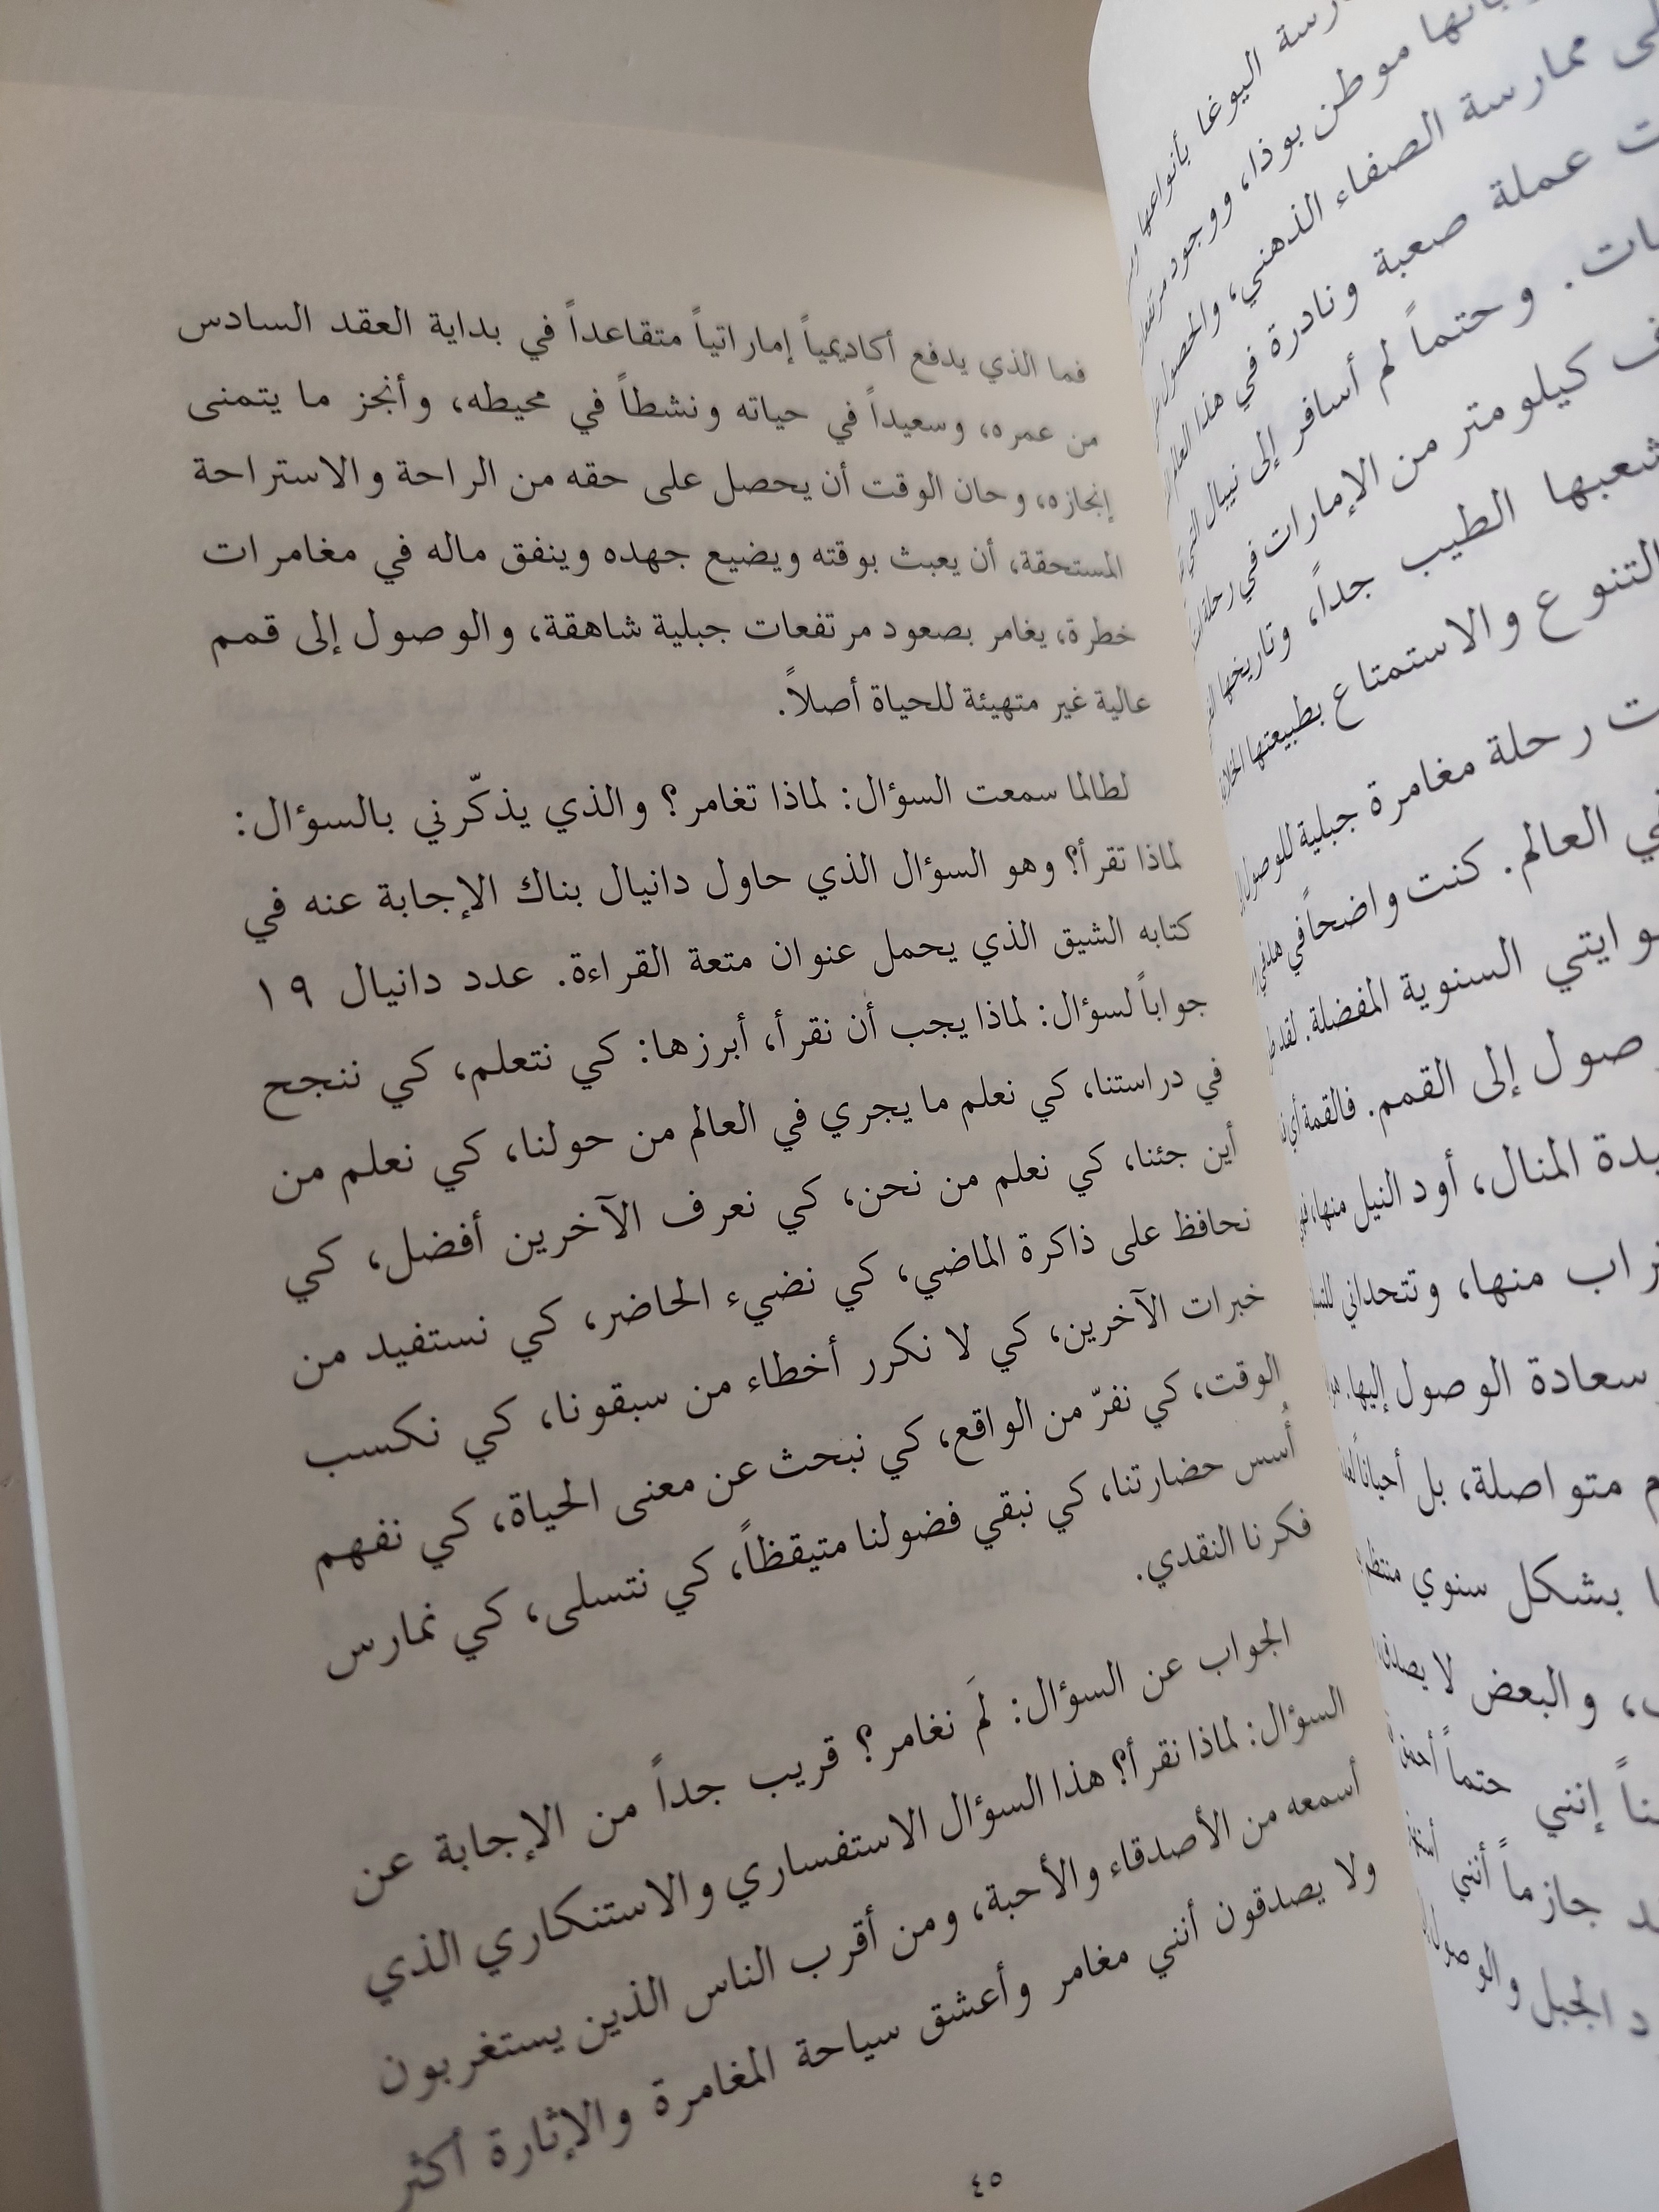 فما الذي يدفع أكاديمياً إماراتياً متقاعداً في بداية العقد السادس
من عمره، وسعيداً في حياته ونشطاً في محيطه، وأنجز ما يتمنى
إنجازه، وحان الوقت أن يحصل على حقه من الراحة والاستراحة
المستحقة، أن يعبث بوقته ويضيع جهده وينفق ماله في مغامرات
خطرة، يغامر بصعود مرتفعات جبلية شاهقة، والوصول إلى قمم
عالية غير متهيئة للحياة أصلاً.
لطالما سمعت السؤال: لماذا تغامر؟ والذي يذكّرني بالسؤال:
لماذا تقرأ؟ وهو السؤال الذي حاول دانيال بناك الإجابة عنه في
كتابه الشيق الذي يحمل عنوان متعة القراءة. عدد دانيال ١٩
جواباً لسؤال: لماذا يجب أن نقرأ، أبرزها: كي نتعلم، كي ننجح
في دراستنا، كي نعلم ما يجري في العالم من حولنا، كي نعلم من
أين جئنا، كي نعلم من نحن، كي نعرف الآخرين أفضل، كي
نحافظ على ذاكرة الماضي، كي نضيء الحاضر، كي نستفيد من
خبرات الآخرين، كي لا نكرر أخطاء من سبقونا، كي نكسب
الوقت، كي نفرّ من الواقع، كي نبحث عن معنى الحياة، كي نفهم
أُسس حضارتنا، كي نبقي فضولنا متيقظاً، كي نتسلى، كي نمارس
فكرنا النقدي.
الجواب عن السؤال: لَم نغامر؟ قريب جداً من الإجابة عن
السؤال: لماذا نقرأ؟ هذا السؤال الاستفساري والاستنكاري الذي
أسمعه من الأصدقاء والأحبة، ومن أقرب الناس الذين يستغربون
ولا يصدقون أنني مغامر وأعشق سياحة المغامرة والإثارة أكثر
٤٥
اليوغا بأنواعها
موطن بوذا، ووجود
ممارسة الصفاء الذهني، والحصول
عملة صعبة ونادرة في هذا العالم
وحتماً لم أسافر إلى نيبال التي
كيلومتر من الإمارات في رحلة
شعبها الطيب جداً، وتاريخها
التنوع والاستمتاع بطبيعتها
رحلة مغامرة جبلية للوصول
العالم. كنت واضحاً في هدفي
السنوية المفضلة. لقد
إلى القمم. فالقمة
المنال، أود النيل منها،
منها، وتتحداني
سعادة الوصول إليها.
متواصلة، بل أحياناً
بشكل سنوي
والبعض لا
إنني حتماً
جازماً أنني
الجبل